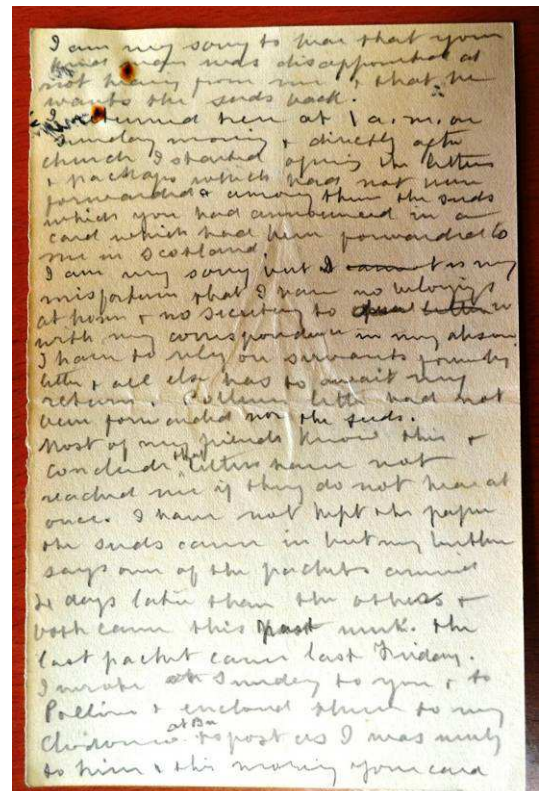 I am very sorry to hear that your
friend was disappointed at
not hearing from me & that he
wants the seeds back.
I returned here at 1 a.m. on
Sunday morning & directly after
church I started opening the letters
& packages which had not been
forwarded & among them the seeds
which you had announced in a
card which had been forwarded to
me in Scotland.
I am very sorry but it is my
misfortune that I have no belongings
at home & no secretary to
with my correspondence in my absence.
I have to rely on servants forwarding
letters & all else has to await my
return. letter had not
been forwarded nor the seeds.
Most of my friends know this &
conclude that letters have not
reached me if they do not hear at
once. I have not kept the paper
the seeds came in but my butler
says one of the packets arrived
days later than the others &
both came this past week. The
last packet came last Friday.
I wrote Sunday to you & to
& enclosed them to my
to post as I was
to him & this morning your card